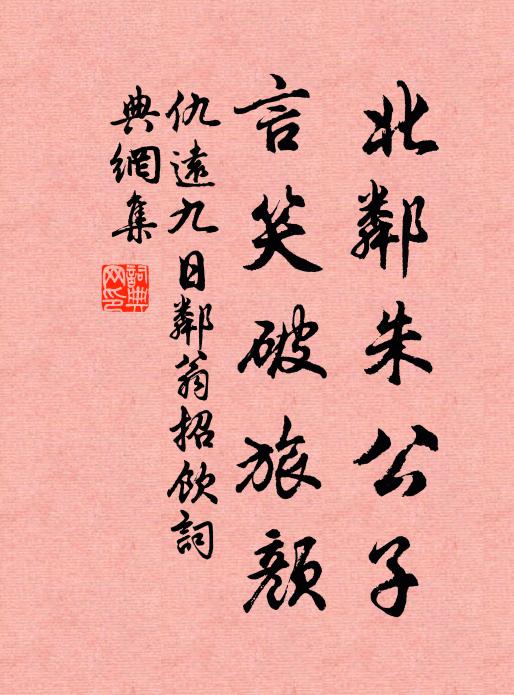 北鄰朱公子
言笑破旅顏
仇遠九日鄰翁招飲詞
典網集
詞典網印